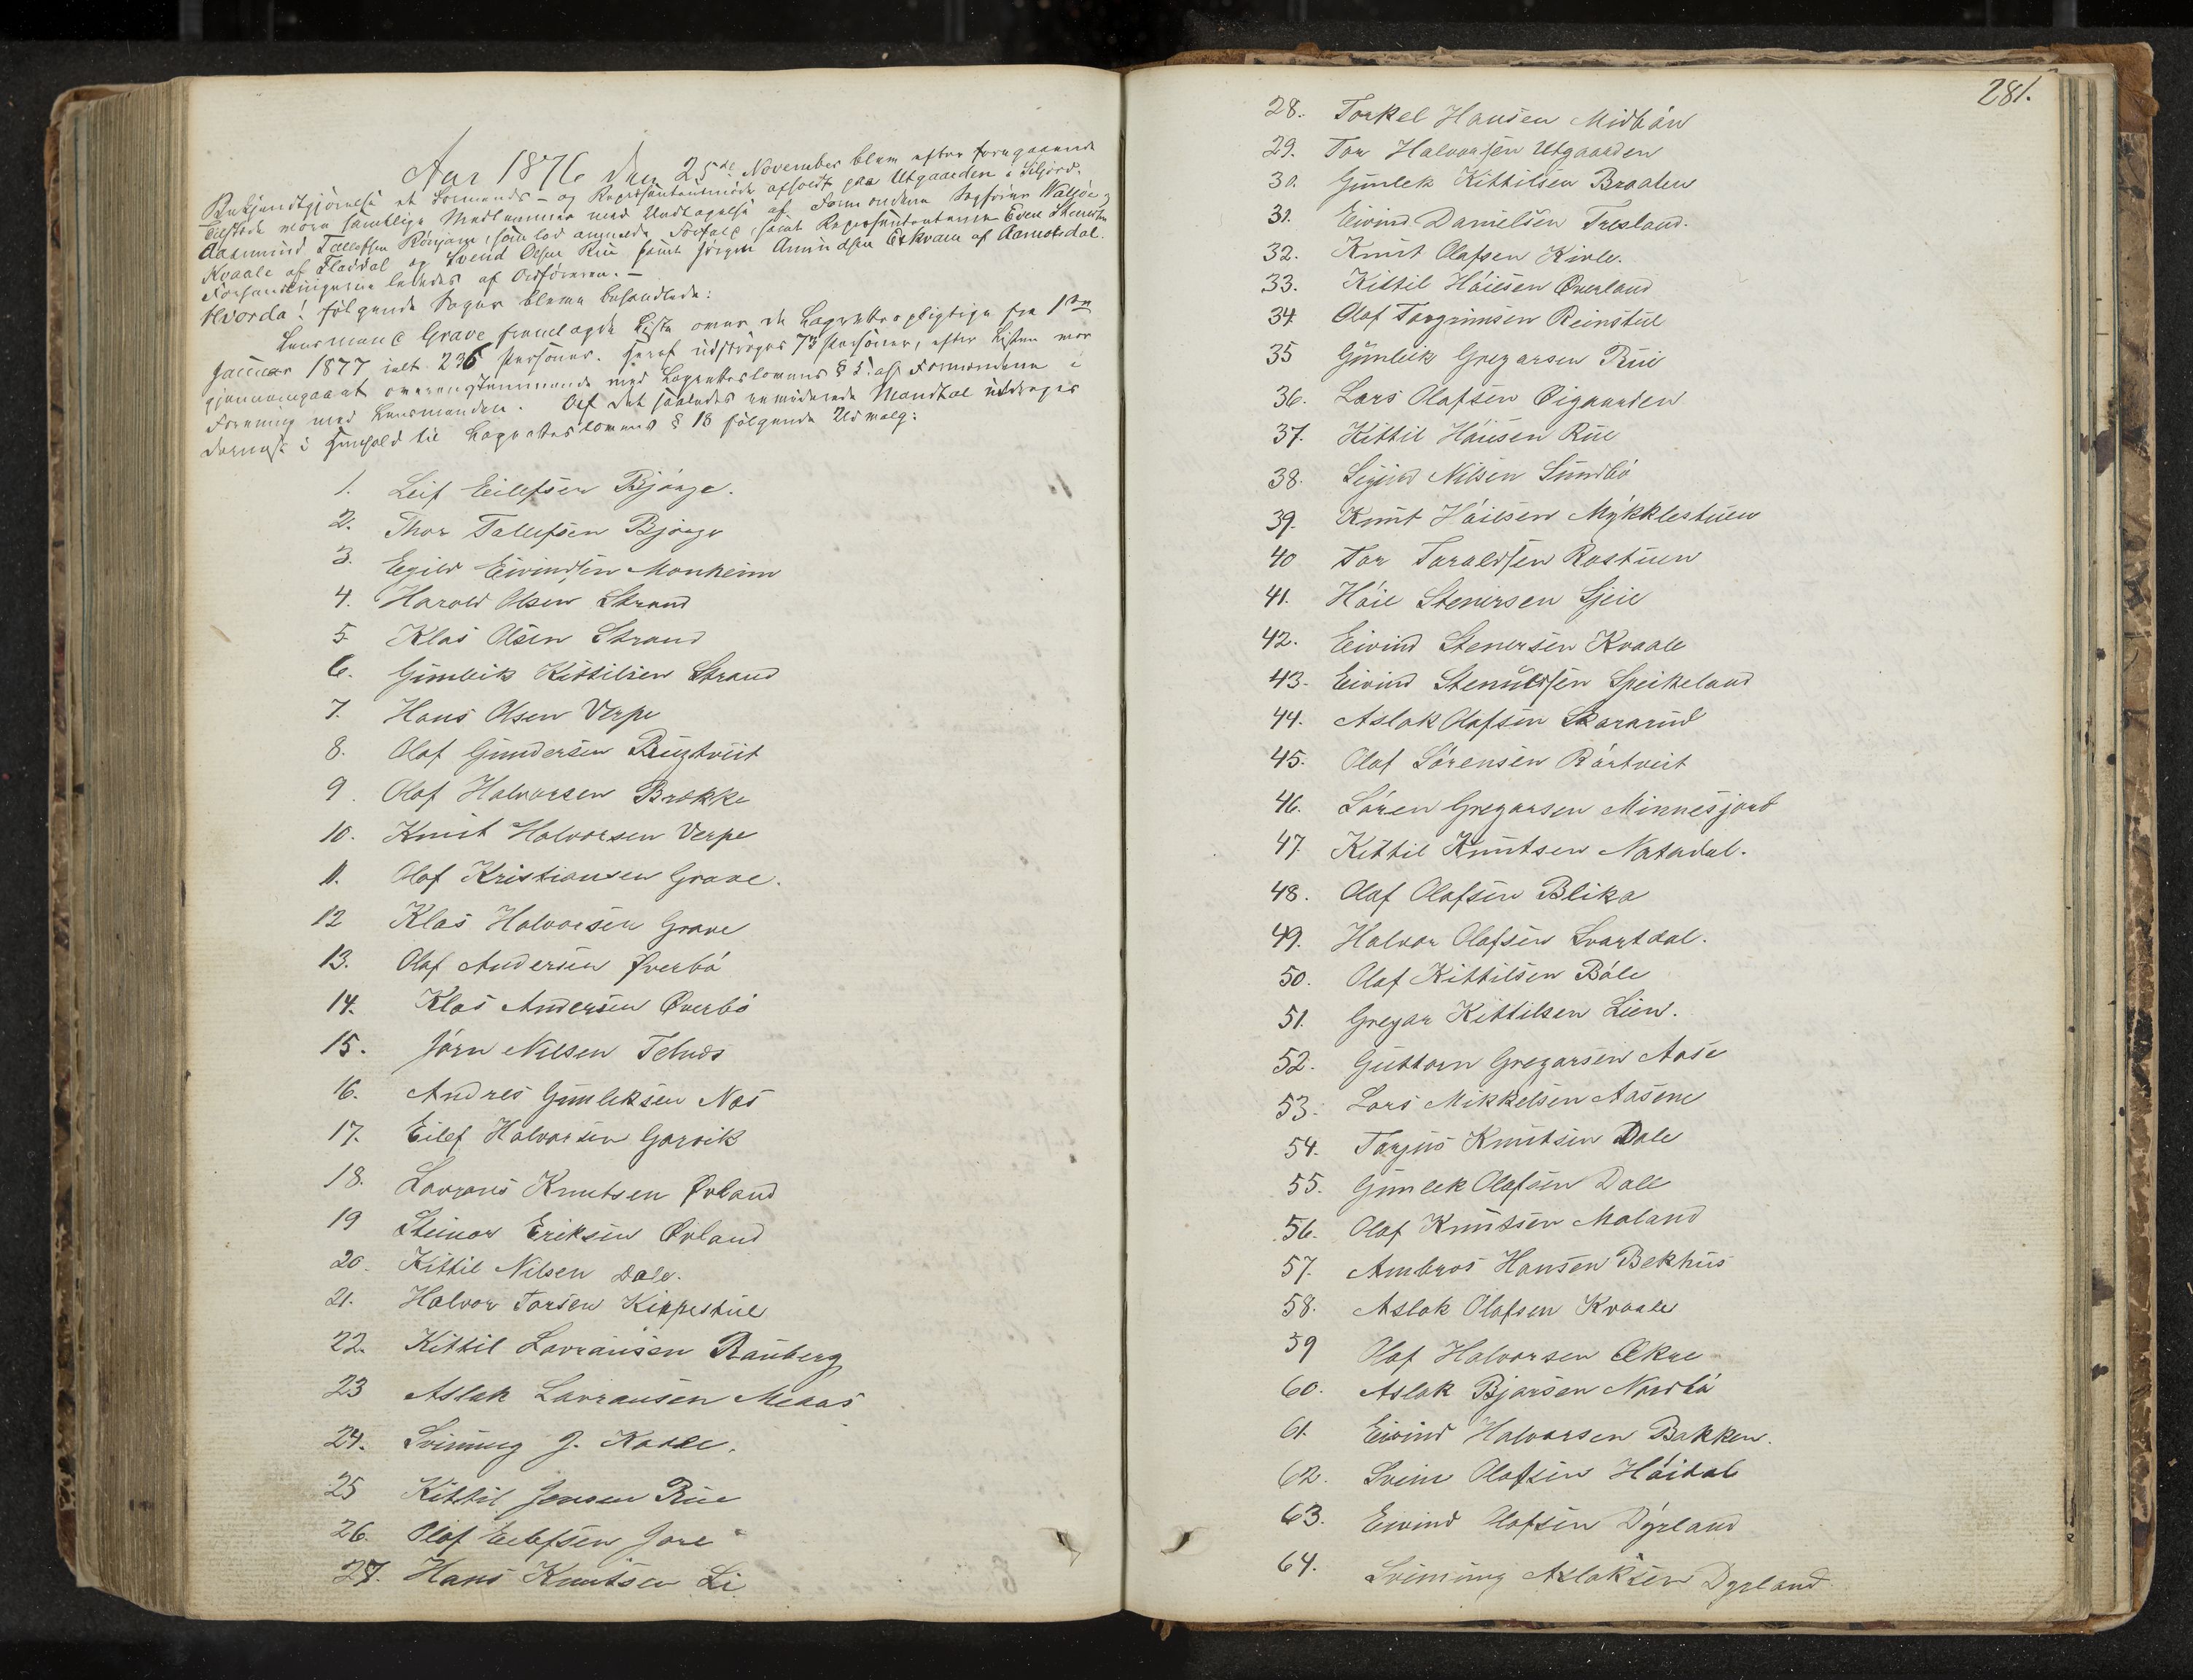 Aar 1876 den 25de November blev efter foregaaende
Bekjendtgjørelse et Formands- og Repræsentantmøde afholdt paa Utgaarden i Siljord.
Tilstede vare samtlige Medlemmer med Undtagelse af Formændene Sagfører
Aasmund Tallefsen Rönjom, som lod anmelde Forfald, samt Repræsentanterne Even Stenersen
Kvaale af Fladdal og Svend Olsen Rue samt Jörgen Amundsen Exkvam af Aamotsdal.
Forhandlingerne lededes af Ordføreren. –
Hvorda! følgende Sager bleve behandlede:
Lensmand Grave fremlagde Liste over de Lagrettepligtige fra 1ste
Januar 1877 ialt 236 Personer. Heraf udstryges 73 Personer, efter at Listen var
gjennemgaaet overensstemmende med Lagretteslovens § 5 af Formændene i
Forening med Lensmanden. Af det saaledes reviderede Mandtal utdroges
dernæst i Henhold til Lagretteslovens § 13 følgende Udvalg:
1. Leif Eilefsen Bjórge.
2. Thor Tallefsen Bjórge
3. Egild Eivindsen Monheim
4. Harold Olsen Strand
5. Klas Olsen Strand
6. Gunleik Kittilsen Strand
7. Hans Olsen Verpe
8. Olaf Gundersen
9. Olaf Halvorsen Brokke
10. Knut Halvorsen Verpe
11. Olaf Kristiansen Grave.
12 Klas Halvorsen Grave
13. Olaf Andersen Øverbó
14. Klas Andersen Øverbó
15. Jórn Nilsen Telnes
16. Andres Gunleksen Nes
17. Eilef Halvorsen Garvik
18. Lavrans Knutsen Ørland
19 Steinar Eriksen Ørland
20. Kittil Nilsen Dale.
21. Halvor Torsen Kippestul
22. Kittil Lavransen Rauberg
23 Aslak Lavransen Meaas
24. Sveinung J. Kaase.
25 Kittil Jensen Rue
26. Olaf Eilefsen Jore
27. Hans Knutsen Li
281.
28. Torkel Hansen Midbón
29. Tor Halvorsen Utgaarden
30. Gunlek Kittilsen Braaten
31. Eivind Danielsen Tresland.
32. Knut Olafsen Kivle.
33. Kittil Hóiesen Øverland
34 Olaf Torgrimsen Reinstul
35 Gunleik Gregarsen Rui
36. Lars Olafsen Øigaarden
37. Kittil Hóiesen Rue
38. Sigurd Nilsen Sundbó
39. Knut Hóiesen Mykklestuen
40 Tor Toraldsen Rostuen
41. Hóie Stenersen Gjeie
42. Eivind Stenersen Kvaale
43. Eivind Stenulfsen Speikeland
44. Aslak Olafsen Skararud
45. Olaf Sórensen Rórtveit
46. Sóren Gregarsen Minnesjord
47 Kittil Knutsen Natadal.
48. Olaf Olafsen Blika
49. Halvor Olafsen Svartdal.
50. Olaf Kittilsen Bóle
51. Gregar Kittilsen Lien.
52. Guttorm Gregarsen Aase
53. Lars Mikkelsen Aasene
54. Torjus Knutsen Dale
55. Gunlek Olafsen Dale
56. Olaf Knutsen Moland
57. Ambros Hansen Bekhus
58. Aslak Olafsen Kvaale
59 Olaf Halvorsen Ækre
60. Aslak Bjørsen Nordbó
61. Eivind Halvorsen Bakken.
62. Svein Olafsen Hóidal
63. Eivind Olafsen Dyrland
64. Sveinung Aslaksen Dyrland